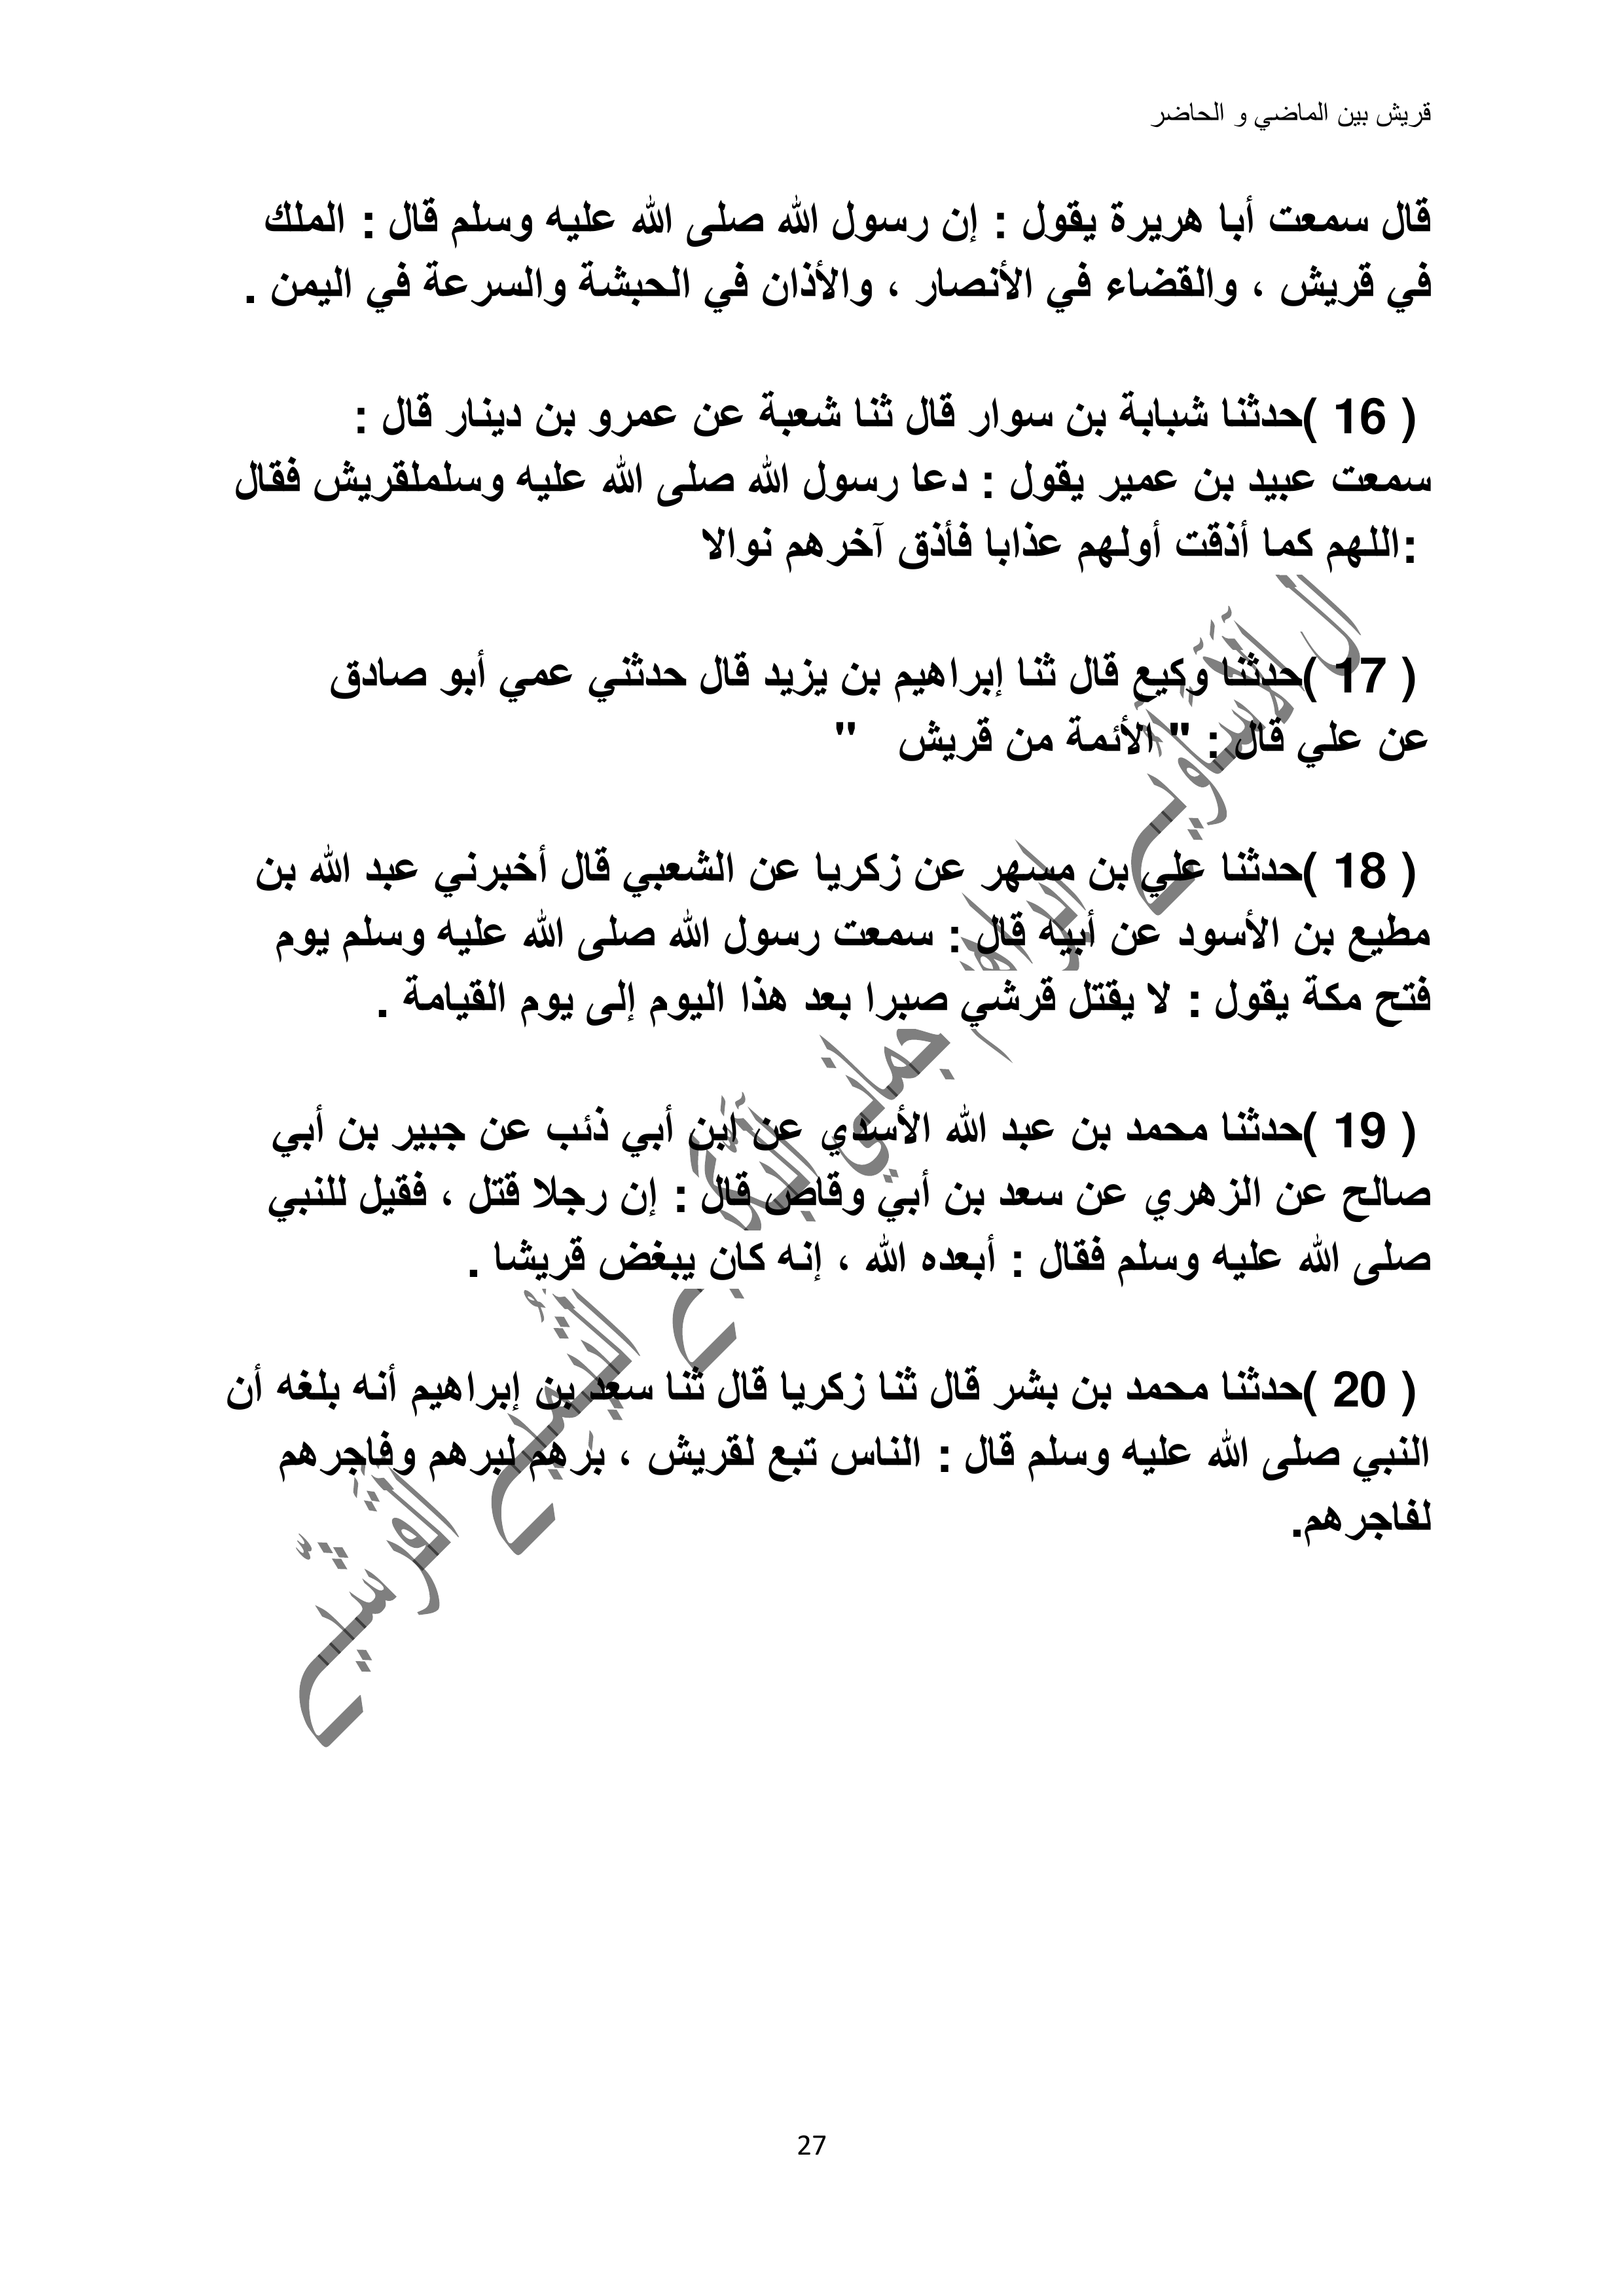 قريش بين الماضي و الحاضر
قال سمعت أبا هريرة يقول : إن رسول الله صلى الله عليه وسلم قال : الملك
في قريش ، والقضاء في الأنصار ، والأذان في الحبشة والسرعة في اليمن .
( 16 )حدثنا شبابة بن سوار قال ثنا شعبة عن عمرو بن دينار قال :
سمعت عبيد بن عمير يقول : دعا رسول الله صلى الله عليه وسلملقريش فقال
:اللهم كما أذقت أولهم عذابا فأذق آخرهم نوالا
( 17 )حدثنا وكيع قال ثنا إبراهيم بن يزيد قال حدثني عمي أبو صادق
عن علي قال : " الأئمة من قريش "
( 18 )حدثنا علي بن مسهر عن زكريا عن الشعبي قال أخبرني عبد الله بن
مطيع بن الأسود عن أبيه قال : سمعت رسول الله صلى الله عليه وسلم يوم
فتح مكة يقول : لا يقتل قرشي صبرا بعد هذا اليوم إلى يوم القيامة .
( 19 )حدثنا محمد بن عبد الله الأسدي عن ابن أبي ذئب عن جبير بن أبي
صالح عن الزهري عن سعد بن أبي وقاص قال : إن رجلا قتل ، فقيل للنبي
صلى الله عليه وسلم فقال : أبعده الله ، إنه كان يبغض قريشا .
( 20 )حدثنا محمد بن بشر قال ثنا زكريا قال ثنا سعد بن إبراهيم أنه بلغه أن
النبي صلى الله عليه وسلم قال : الناس تبع لقريش ، برهم لبرهم وفاجرهم
لفاجرهم.
27